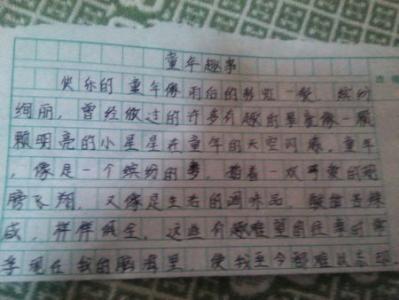 童年趣事
快乐的童年像雨后的彩虹一般,缤纷
绚丽,曾经做过的许多有趣的事就像一颗
颗明亮的小星星在童年的天空闪烁,童年
,像是一个缤纷的梦,有着一双可爱的翅
膀飞翔,又像是生活的调味品,酸甜苦辣
咸,样样俱全,这些有趣难望的往事时常
浮现在我的脑海里,使我至今都难以忘却